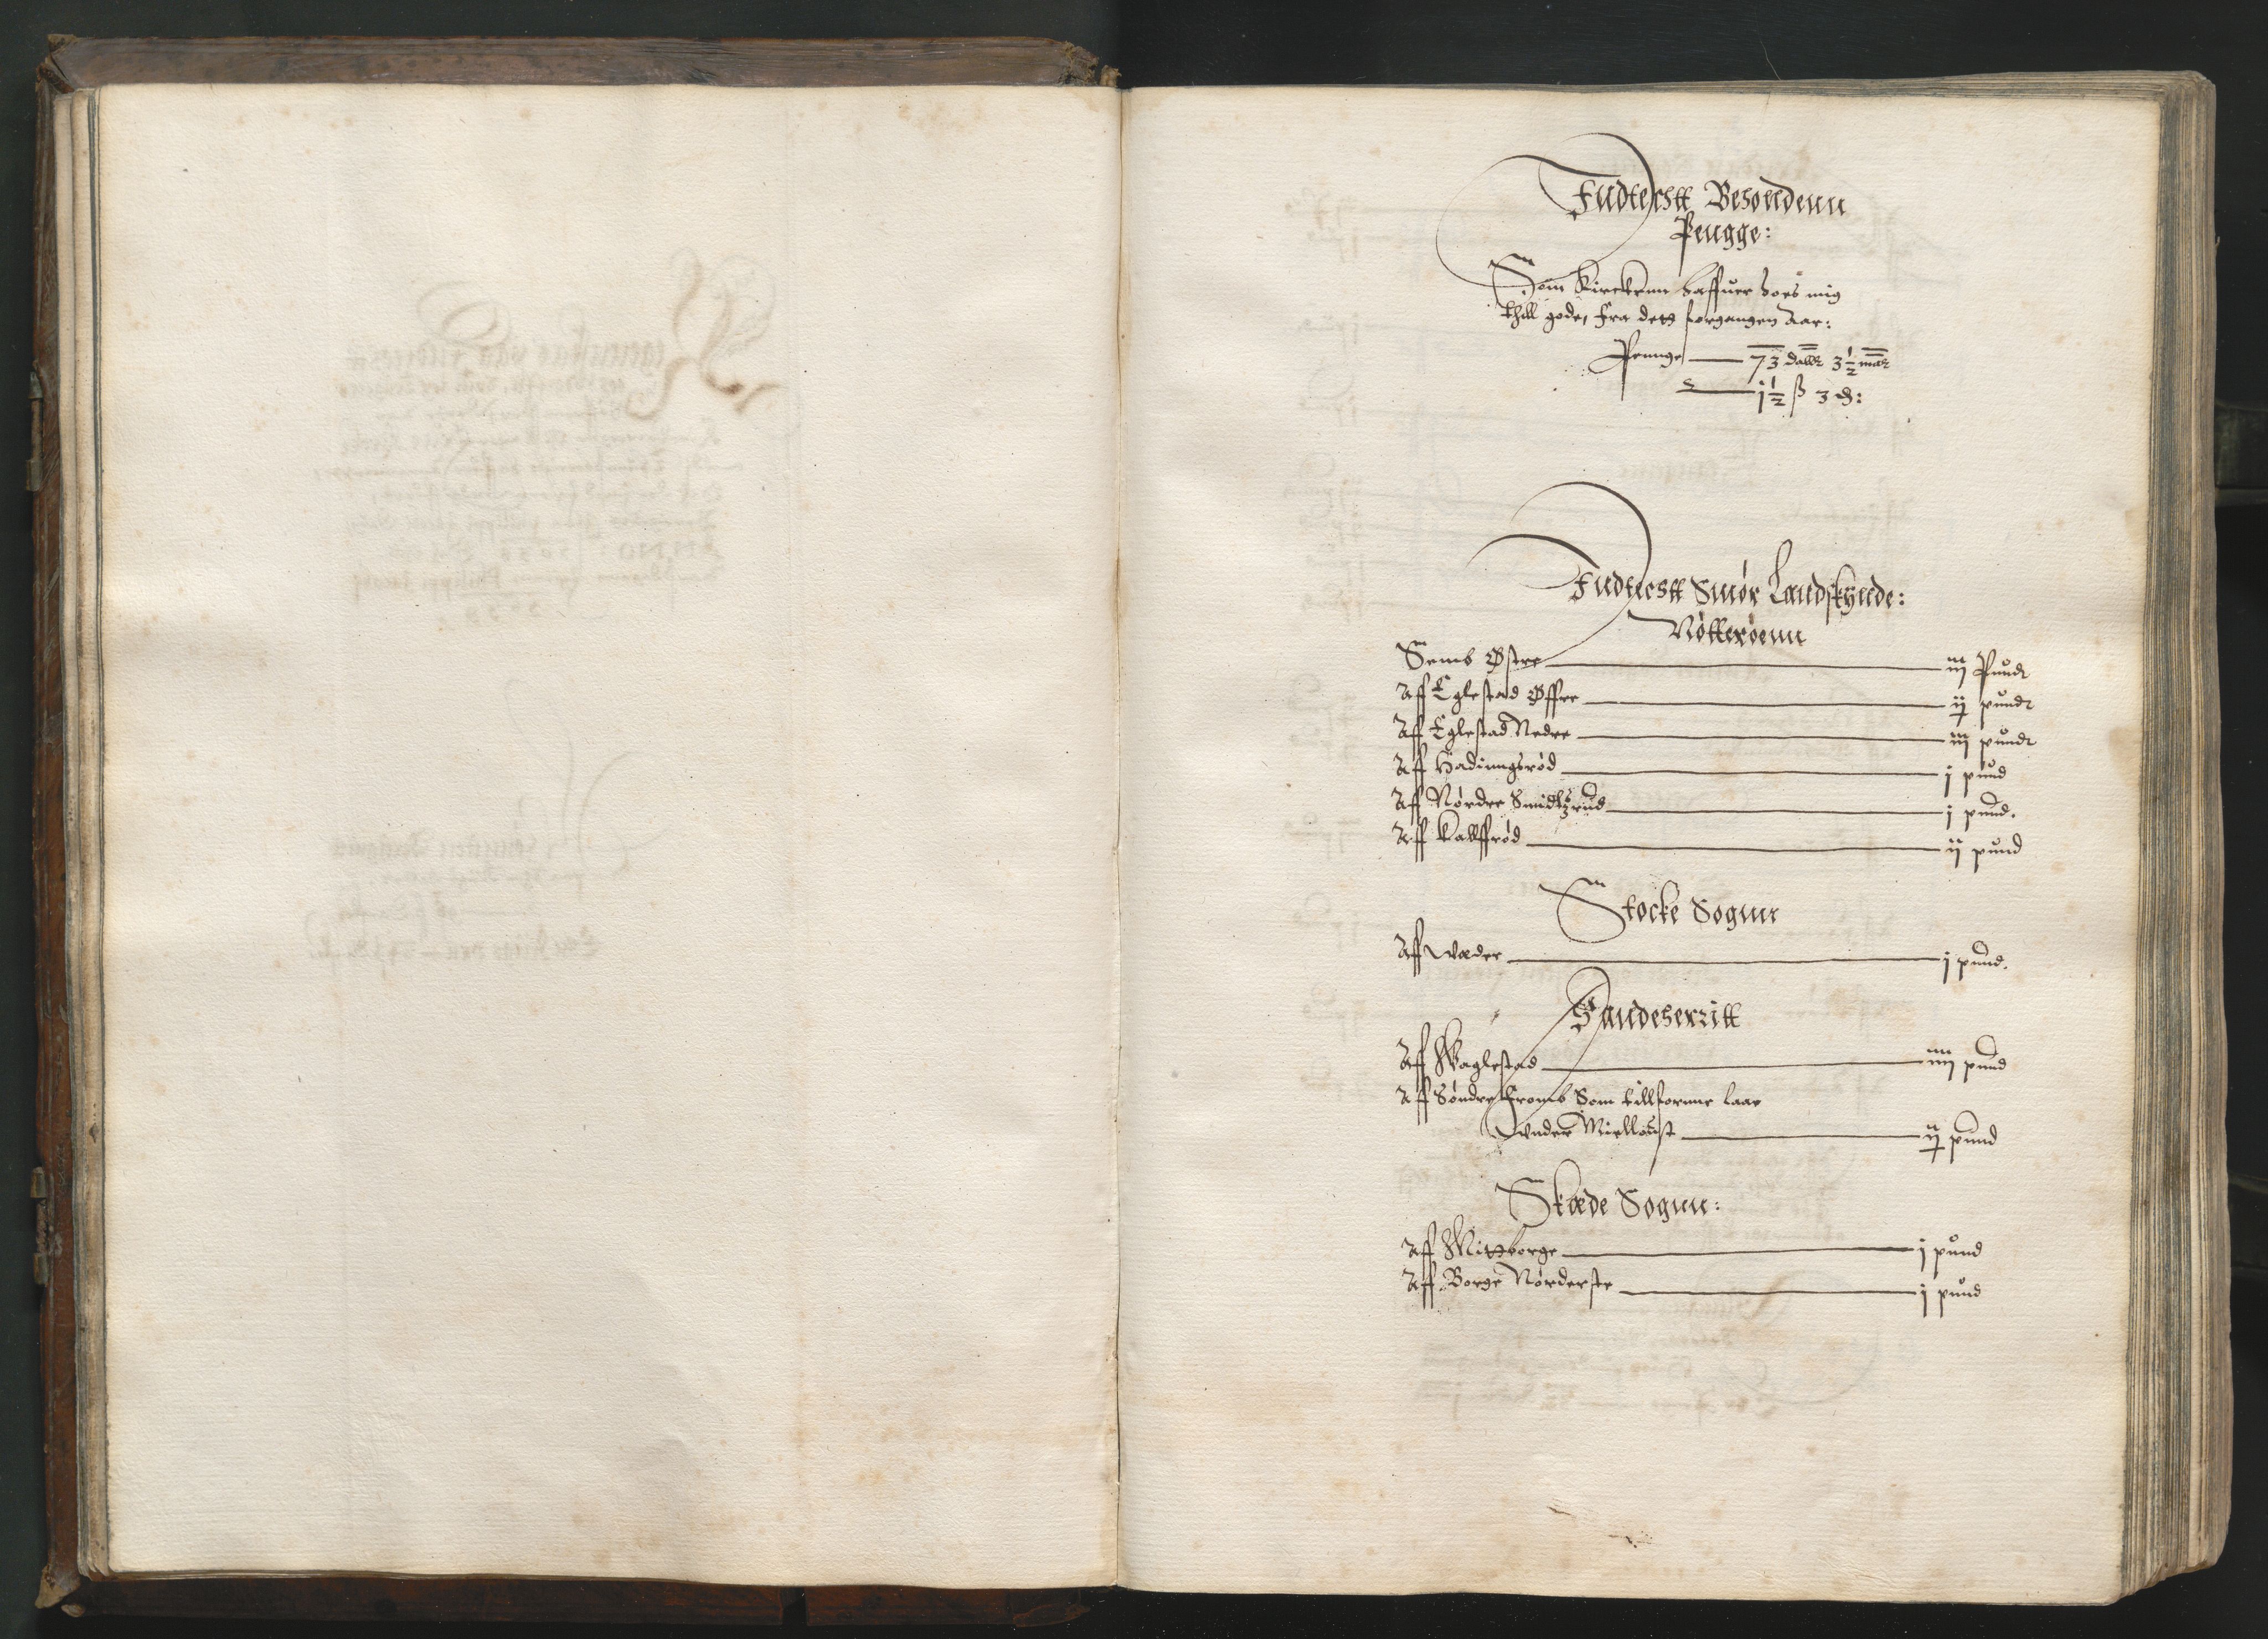 Indtecstt Besondenn
Pengge:
Som Kirckenn haffuer hoes mig
thill gode, fra dett forgangen Aar:
Pennge — 73 dallr 3½ mar
— j½ ß 3 ₰:
Indtecstt Smør Landskynde:
Nøtterøenn
Semb Østre — iij Pundt
Aff Eglestad Øffre — ij pundt
Aff Eglestad Nedre — iij pundt
Aff Hadinngsrød — j pund
Aff Nørdre Smidtzrud — j pund.
Aff Kallffrød — ij pund
Stocke Sognn
Aff Wæder — j pund.
Sandeherritt
Aff Waglestad — iiij pund
Aff Søndre Fromb Som tillfornne laae
Wnder Miellōst — ij pund
Skæde Sognn:
Aff Mittborge — j pund
Aff Borge Nørderste — j pund